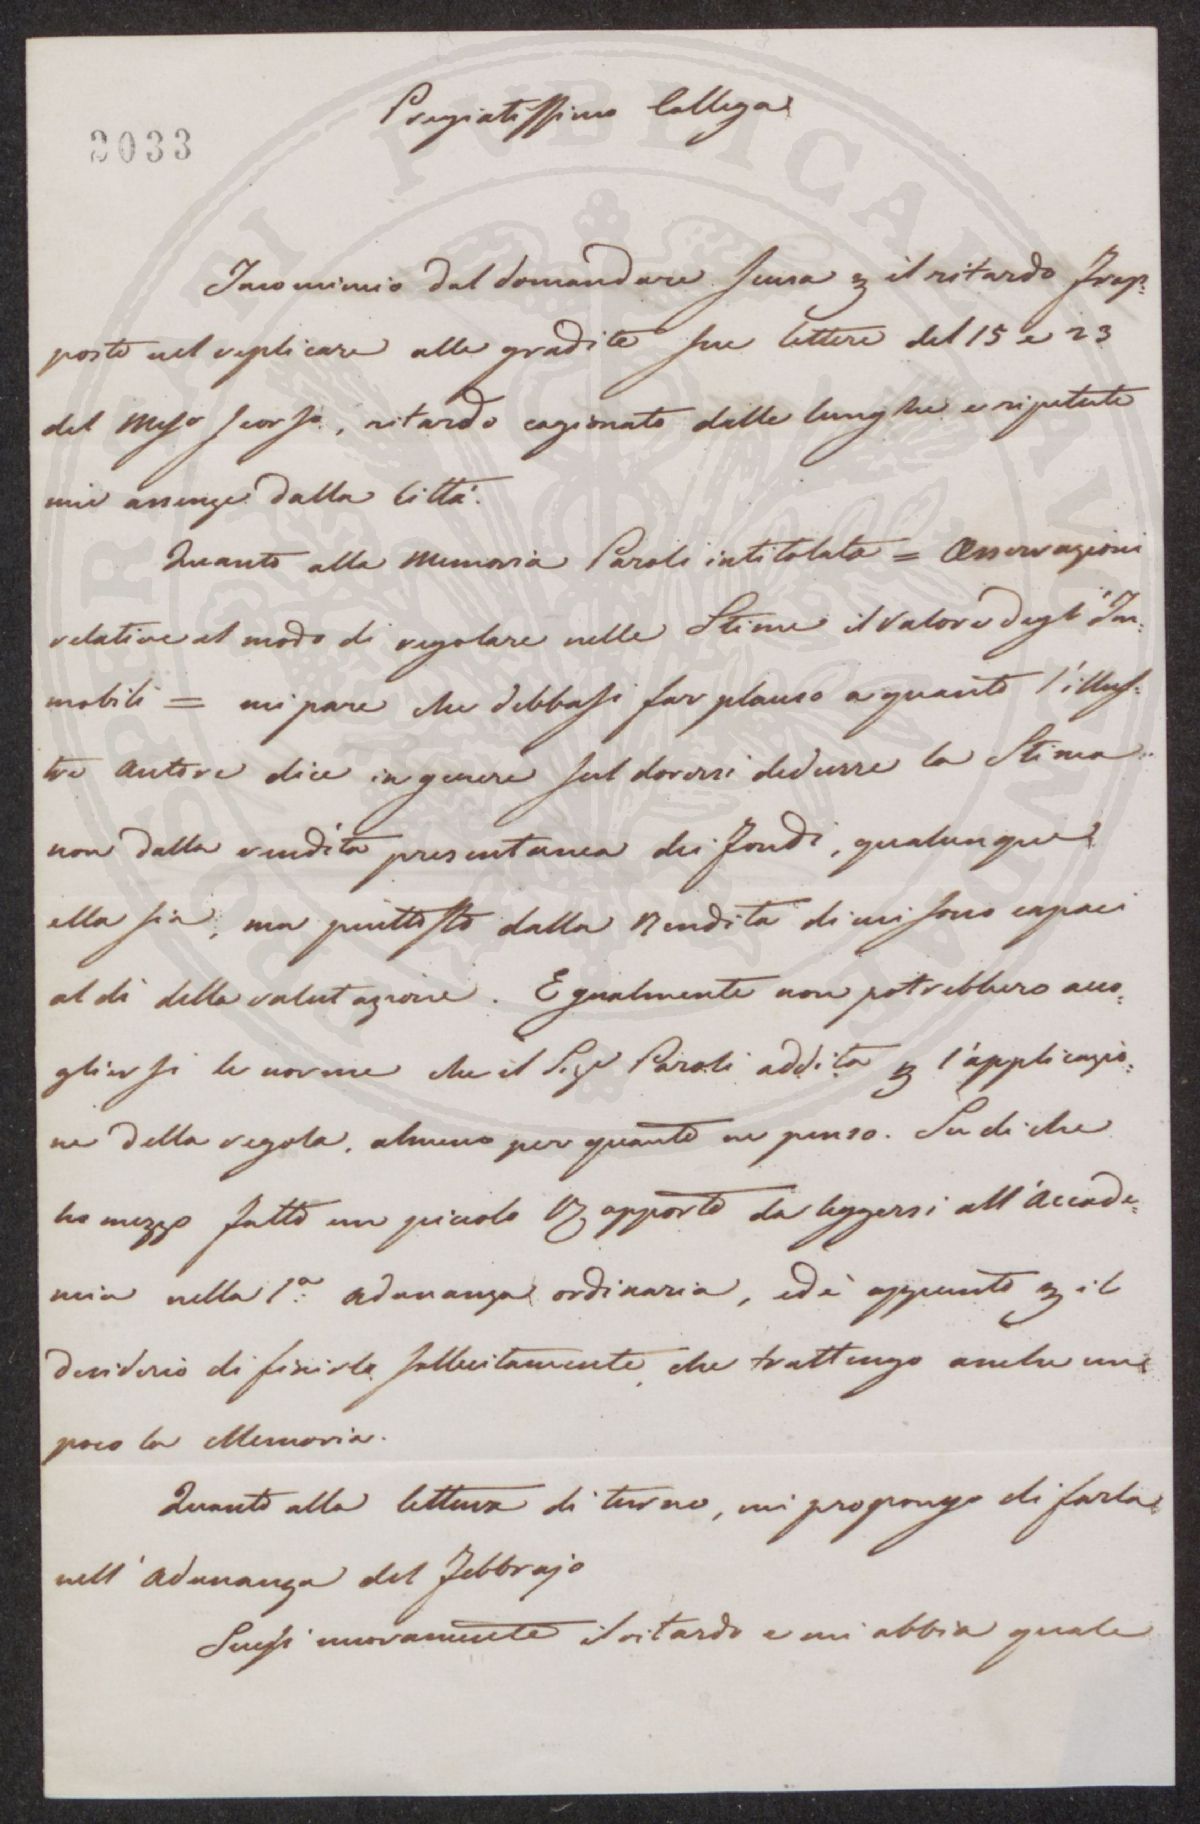 Pregiatissimo Collega
2033
Incomincio dal domandare scusa p il ritardo frap=
posto nel replicare alle gradite sue lettere del 15 e 23
del Mese scorso, ritardo cagionato dalle lunghe e ripetute
mie assenze dalla Città.
Quanto alla Memoria Paroli intitolata = Osservazioni
relative al modo di regolare nelle Stime il valore degl'Im=
mobili = mi pare che debbasi far plauso a quanto l'illus=
tre Autore dice in genere sul doversi dedurre la Stima
non dalla vendita presentanea dei fondi, qualunque
ella sia, ma piuttosto dalla Rendita di cui sono capaci
al dì della valutazione. Egualmente non potrebbero acco=
gliersi le norme che il Sigr Paroli addita p l'applicazio=
ne della regola, almeno per quanto ne penso. Su di che
ho mezzo fatto un piccolo Rapporto da leggersi all'Accade=
mia nella 1a adunanza ordinaria, ed è appunto p il
desiderio di finirlo sollecitamente, che trattengo anche un
poco la Memoria.
Quanto alla lettura di turno, mi propongo di farla
nell'Adunanza del Febbrajo
Scusi nuovamente il ritardo e mi abbia quale